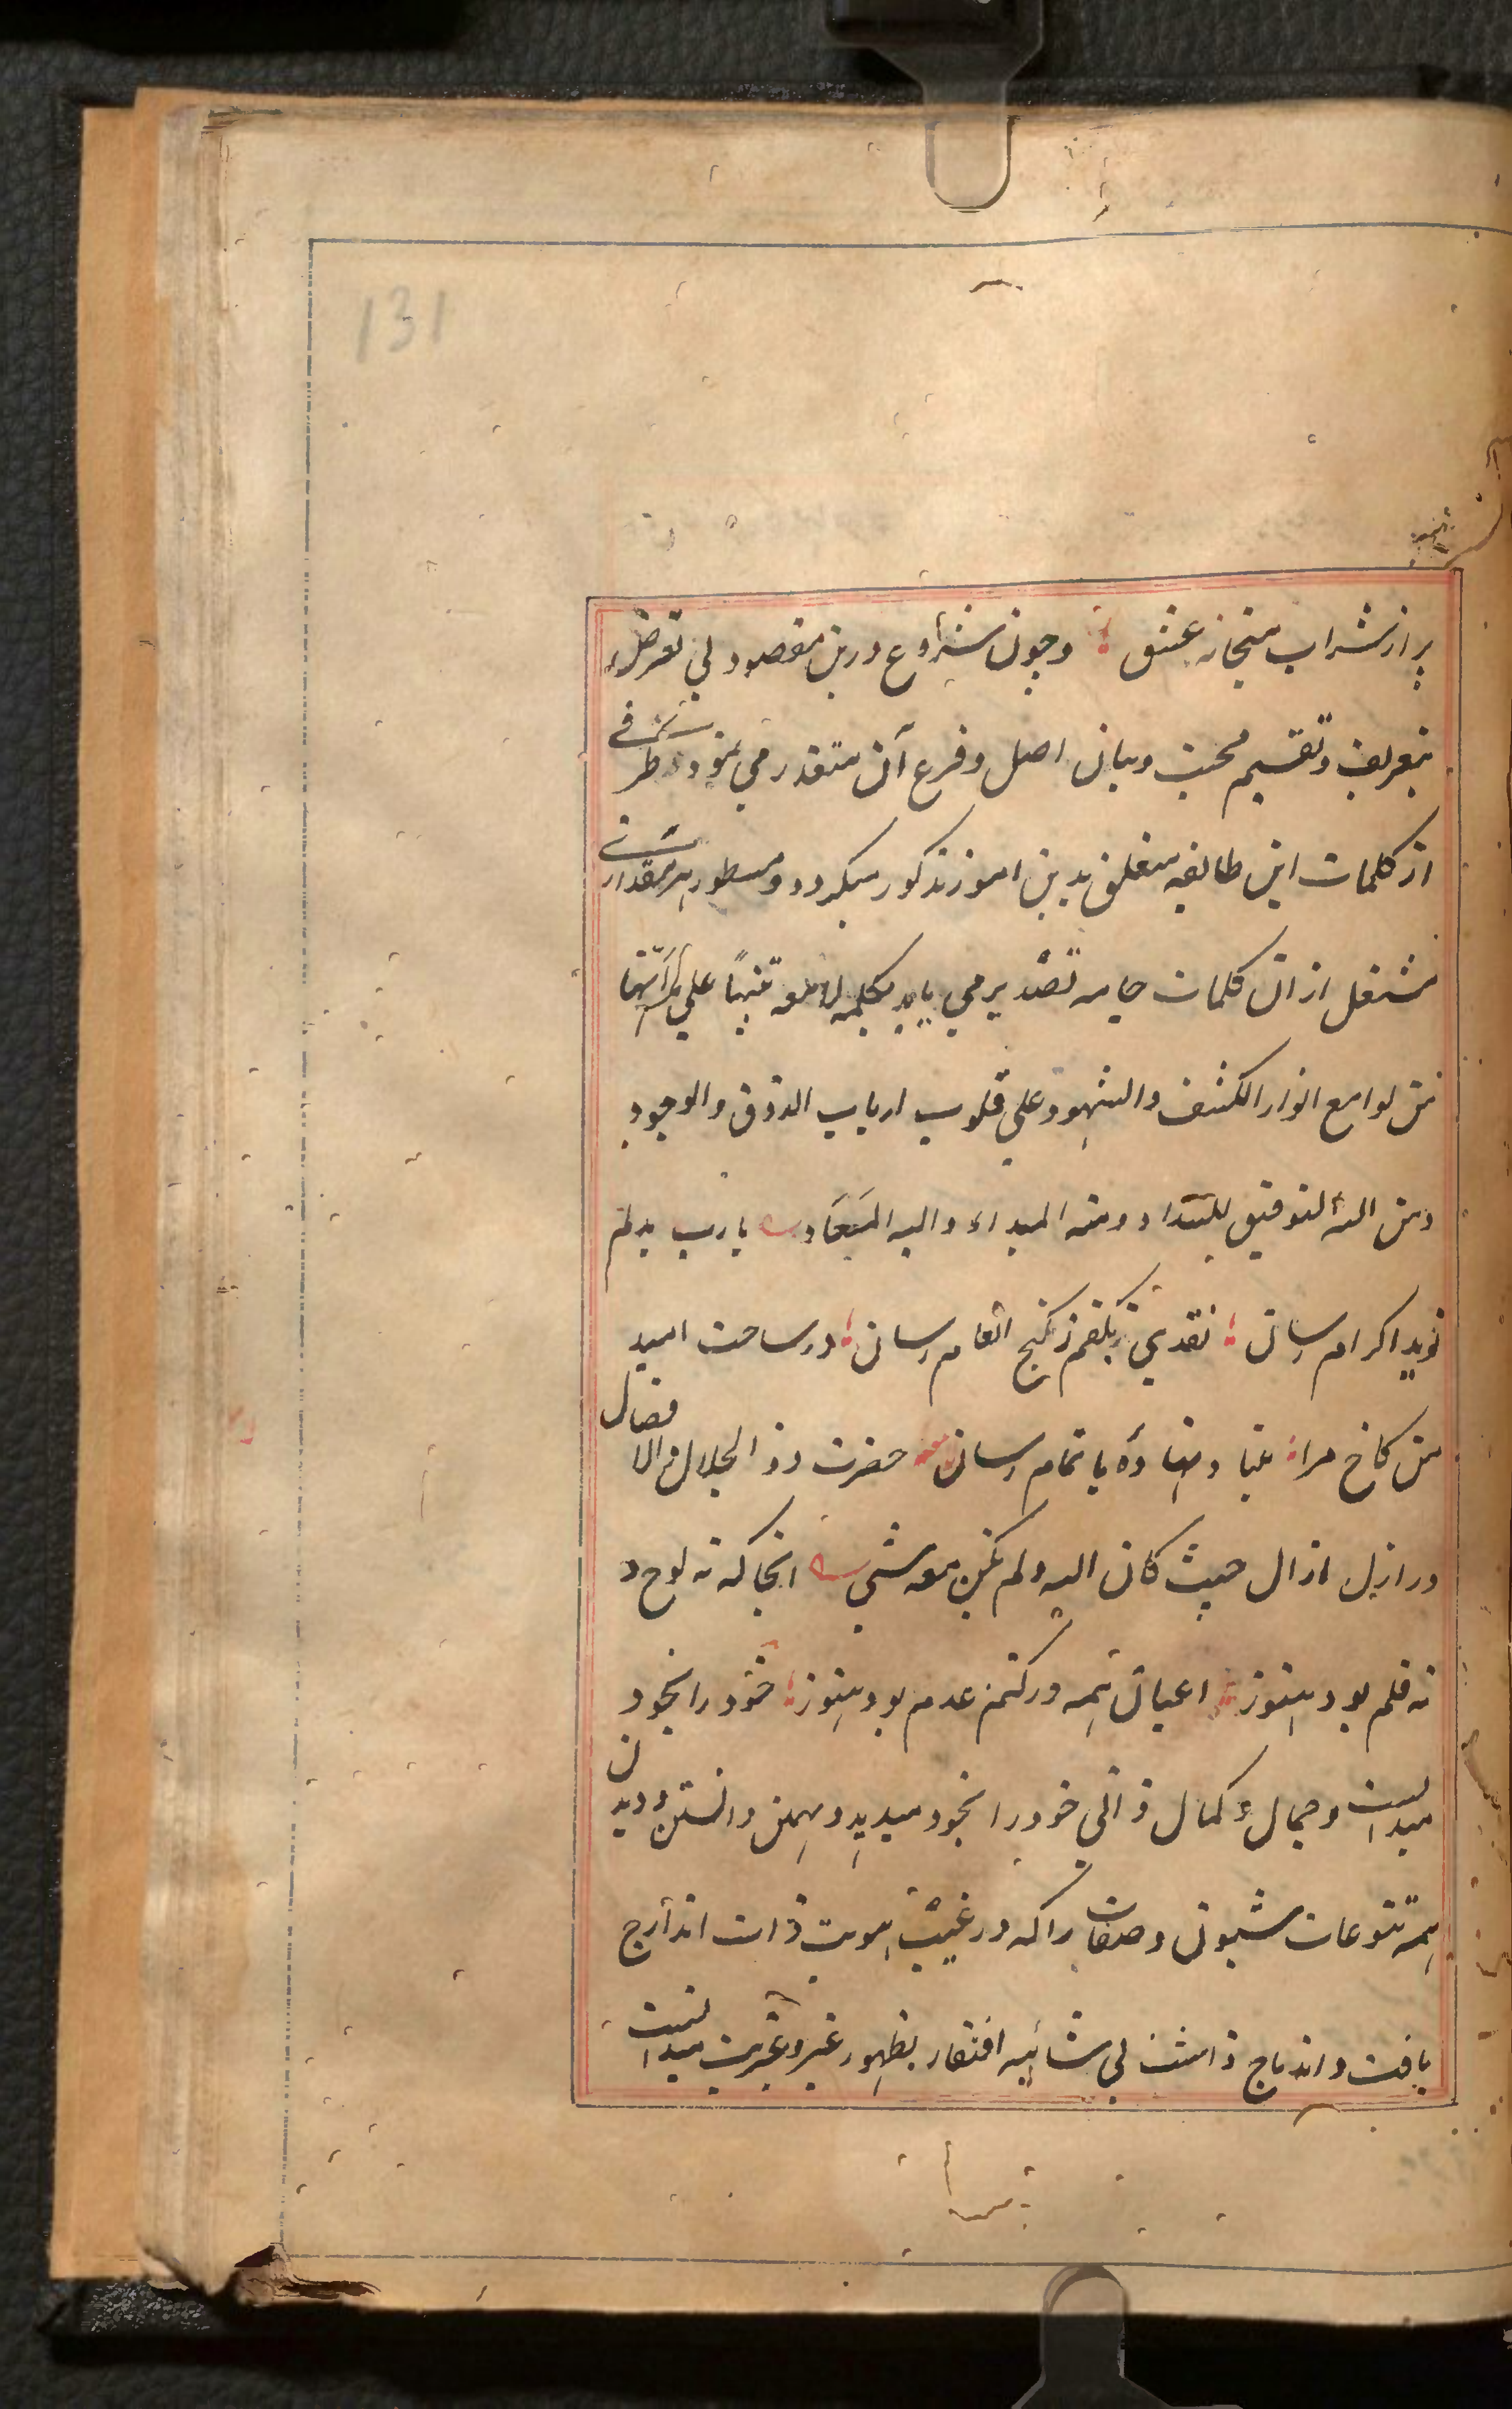 131
پر از شراب میخانه عشق ؛ و چون شروع درین مقصود بی تعرض
بتعریف و تقسیم محبت و بیان اصل و فرع آن متعذر می نمود طرفی
از کلمات این طایفه متعلق بدین امور مذکور میگردد و مسطور هر مقداری
مشتمل از ان کلمات جامه تصدیر می یابد بکلمه لامعه تنبیهاً علی انها
من لوامع انوار الکشف والشهود علی قلوب ارباب الذوق والوجود
ومن الله التوفیق للسداد ومنه المبداء والیه المَعَاد یا رب بدلم
نوید اکرام رسان ؛ نقدی بکفم ز گنج انعام رسان ؛ در ساحت امید
من کاخ مراد بنیاد نهاده باتمام رسان حضرت ذو الجلال والافضال
در ازل ازال حیث کان الله ولم یکن معه شی انجا که نه لوح و
نه قلم بود هنوز ؛ اعیان همه در کتم عدم بود هنوز ؛ خود را بخود
میدانست و جمال و کمال ذاتی خود را بخود میدید و بهمین دانستن و دیدن
همه تنوعات شیون و صفات را که در غیب هویت ذات اندارج
یافت و اندماج داشت بی شائبه افتقار بظهور غیر و غیریت میدانست